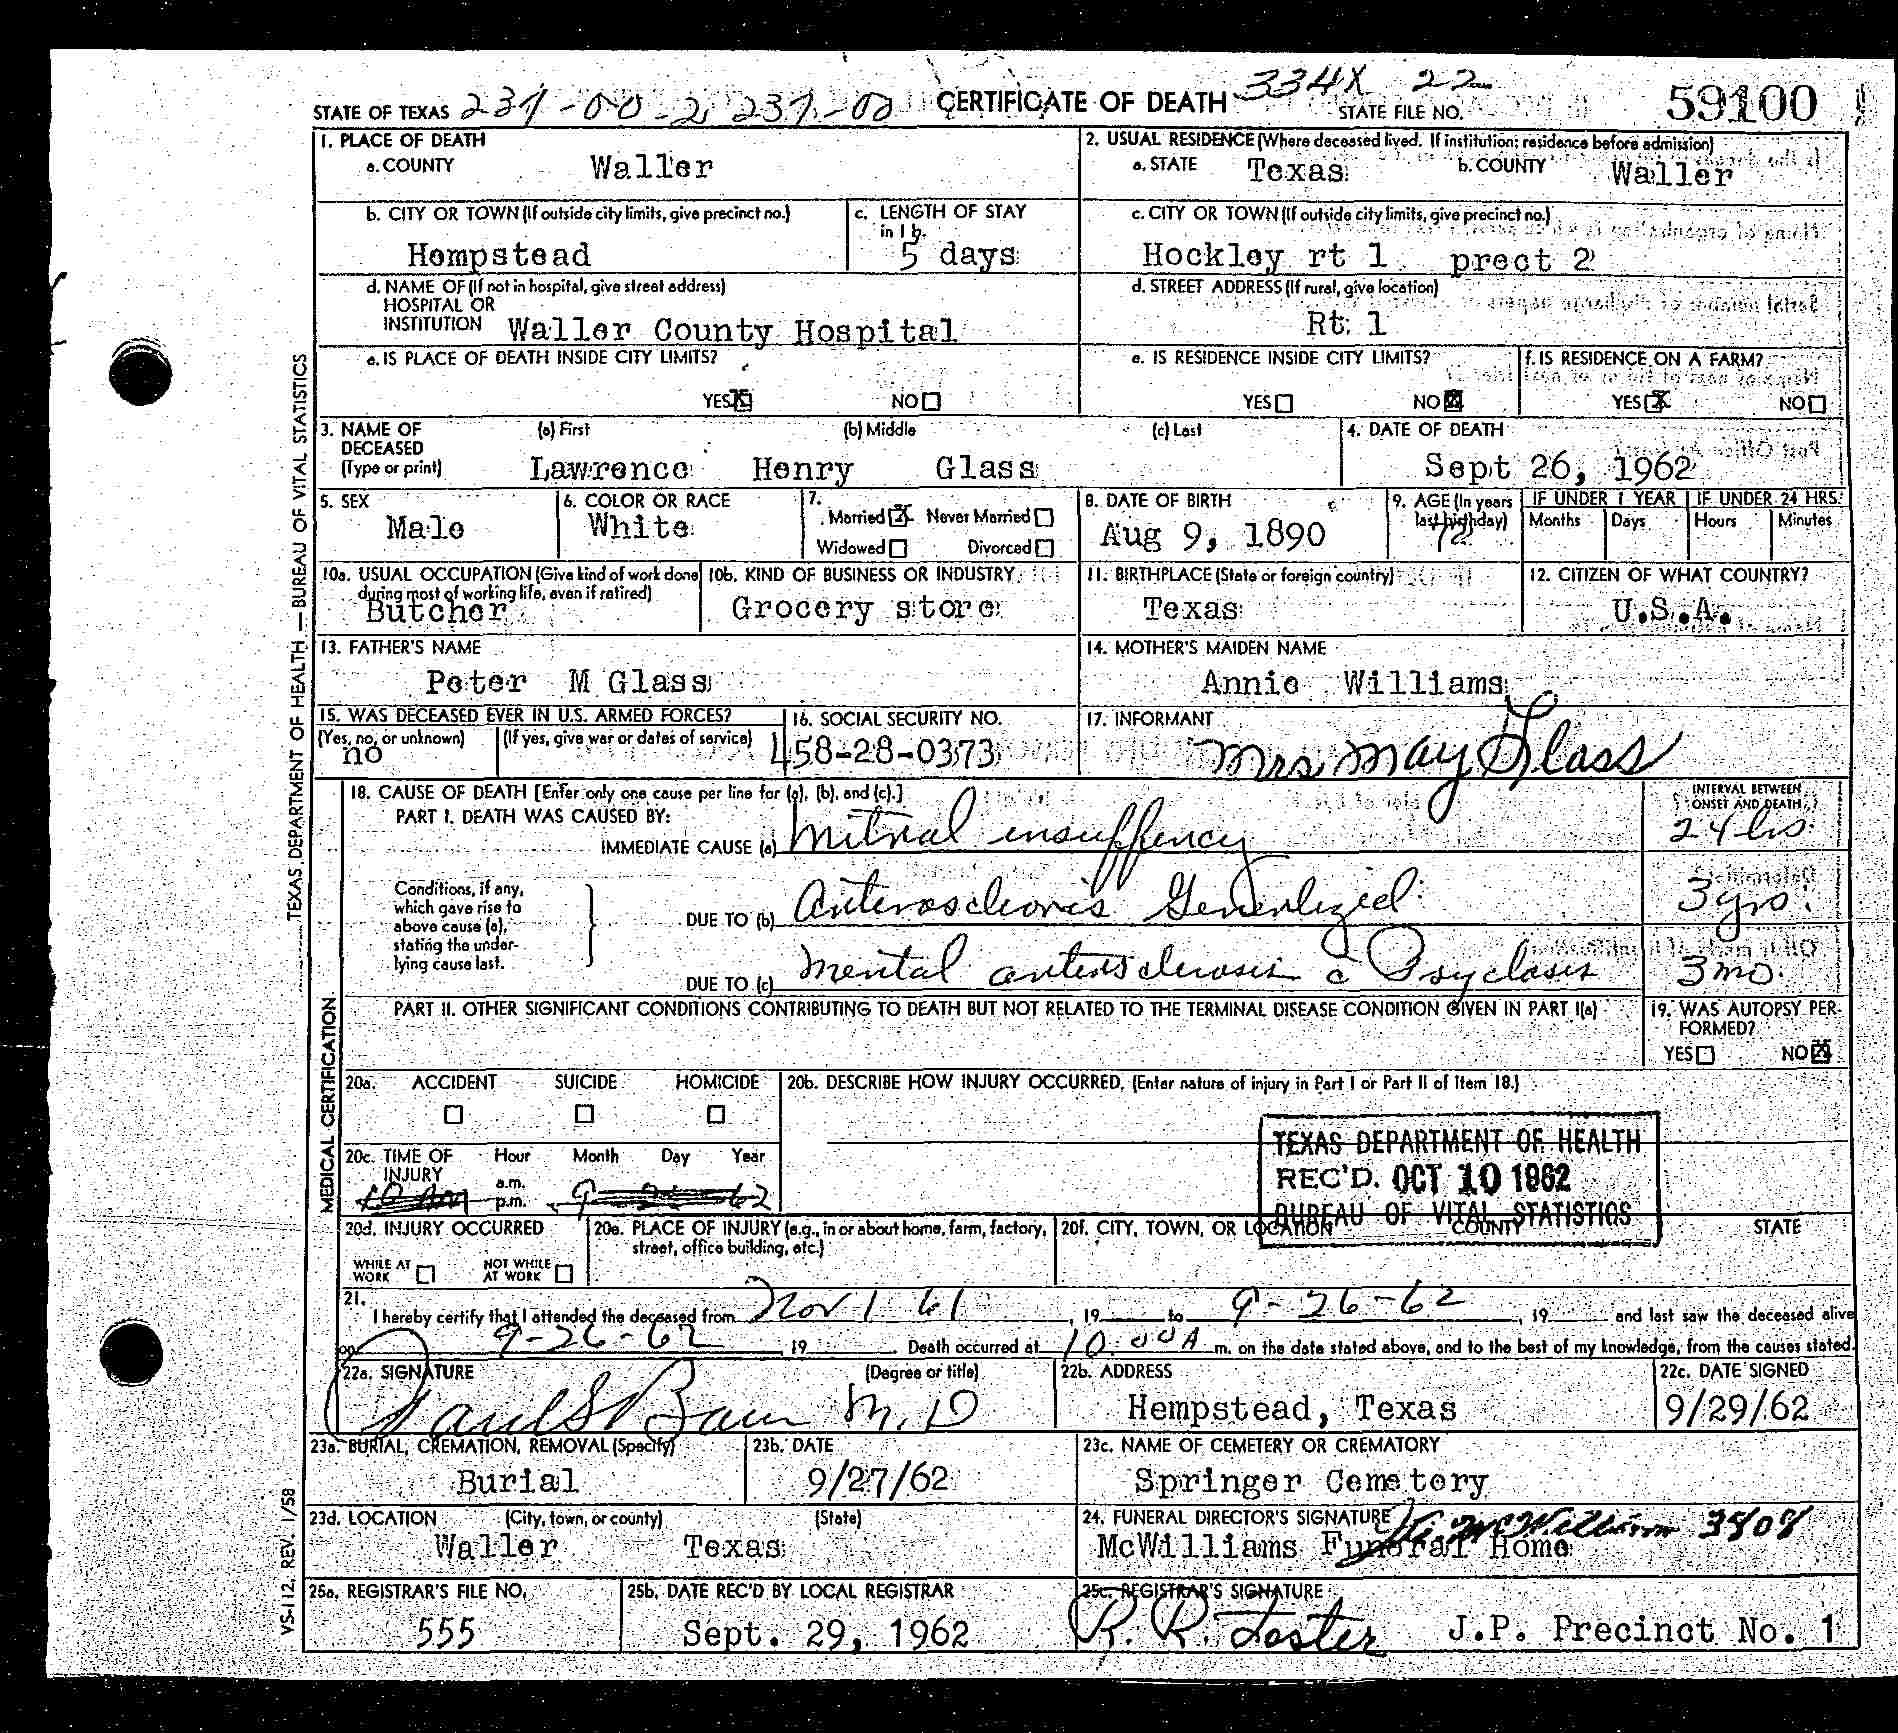 STATE OF TEXAS 237-00-2 237-00 CERTIFICATE OF DEATH 334X 22 STATE FILE NO. 59100
1. PLACE OF DEATH
a. COUNTY Waller
2. USUAL RESIDENCE (Where deceased lived. If institution: residence before admission)
a. STATE Texas b. COUNTY Waller
b. CITY OR TOWN (If outside city limits, give precinct no.)
Hempstead
c. LENGTH OF STAY in 1 b.
5 days
c. CITY OR TOWN (If outside city limits, give precinct no.)
Hockley rt 1 prect 2
d. NAME OF (If not in hospital, give street address)
HOSPITAL OR
INSTITUTION Waller County Hospital
d. STREET ADDRESS (If rural, give location)
Rt 1
e. IS PLACE OF DEATH INSIDE CITY LIMITS?
YES X NO
e. IS RESIDENCE INSIDE CITY LIMITS?
YES NO X
f. IS RESIDENCE ON A FARM?
YES X NO
3. NAME OF DECEASED (Type or print)
(a) First (b) Middle (c) Last
Lawrence Henry Glass
4. DATE OF DEATH
Sept 26, 1962
5. SEX
Male
6. COLOR OR RACE
White
7.
Married X Never Married
Widowed Divorced
8. DATE OF BIRTH
Aug 9, 1890
9. AGE (In years last birthday)
72
IF UNDER 1 YEAR IF UNDER 24 HRS.
Months Days Hours Minutes
10a. USUAL OCCUPATION (Give kind of work done during most of working life, even if retired)
Butcher
10b. KIND OF BUSINESS OR INDUSTRY
Grocery store
11. BIRTHPLACE (State or foreign country)
Texas
12. CITIZEN OF WHAT COUNTRY?
U.S.A.
13. FATHER'S NAME
Peter M Glass
14. MOTHER'S MAIDEN NAME
Annie Williams
15. WAS DECEASED EVER IN U.S. ARMED FORCES?
(Yes, no, or unknown) (If yes, give war or dates of service)
no
16. SOCIAL SECURITY NO.
458-28-0373
17. INFORMANT
Mrs May Glass
18. CAUSE OF DEATH [Enter only one cause per line for (a), (b), and (c).]
INTERVAL BETWEEN ONSET AND DEATH
PART I. DEATH WAS CAUSED BY:
IMMEDIATE CAUSE (a) Mitral insuffency 24 hrs.
Conditions, if any, which gave rise to above cause (a), stating the underlying cause last.
DUE TO (b) Arterosclerosis Generalized 3 yrs.
DUE TO (c) Mental arterosclerosis c Psychosis 3 mo.
PART II. OTHER SIGNIFICANT CONDITIONS CONTRIBUTING TO DEATH BUT NOT RELATED TO THE TERMINAL DISEASE CONDITION GIVEN IN PART I(a)
19. WAS AUTOPSY PERFORMED?
YES NO X
20a. ACCIDENT SUICIDE HOMICIDE
20b. DESCRIBE HOW INJURY OCCURRED. (Enter nature of injury in Part I or Part II of Item 18.)
20c. TIME OF INJURY Hour Month Day Year
a.m.
p.m.
10 AM 9-26-62
TEXAS DEPARTMENT OF HEALTH
REC'D. OCT 10 1962
BUREAU OF VITAL STATISTICS
20d. INJURY OCCURRED
WHILE AT WORK NOT WHILE AT WORK
20e. PLACE OF INJURY (e.g., in or about home, farm, factory, street, office building, etc.)
20f. CITY, TOWN, OR LOCATION COUNTY STATE
21.
I hereby certify that I attended the deceased from Nov 1 61, 19 to 9-26-62, 19 and last saw the deceased alive
on 9-26-62 19. Death occurred at 10:00 A m. on the date stated above, and to the best of my knowledge, from the causes stated.
22a. SIGNATURE (Degree or title)
M.D
22b. ADDRESS
Hempstead, Texas
22c. DATE SIGNED
9/29/62
23a. BURIAL, CREMATION, REMOVAL (Specify)
Burial
23b. DATE
9/27/62
23c. NAME OF CEMETERY OR CREMATORY
Springer Cemetery
23d. LOCATION (City, town, or county) (State)
Waller Texas
24. FUNERAL DIRECTOR'S SIGNATURE McWilliams 3808
McWilliams Funeral Home
25a. REGISTRAR'S FILE NO.
555
25b. DATE REC'D BY LOCAL REGISTRAR
Sept. 29, 1962
25c. REGISTRAR'S SIGNATURE
R. R. Foster J.P. Precinct No. 1
TEXAS DEPARTMENT OF HEALTH — BUREAU OF VITAL STATISTICS
MEDICAL CERTIFICATION
VS-112, REV. 1/58